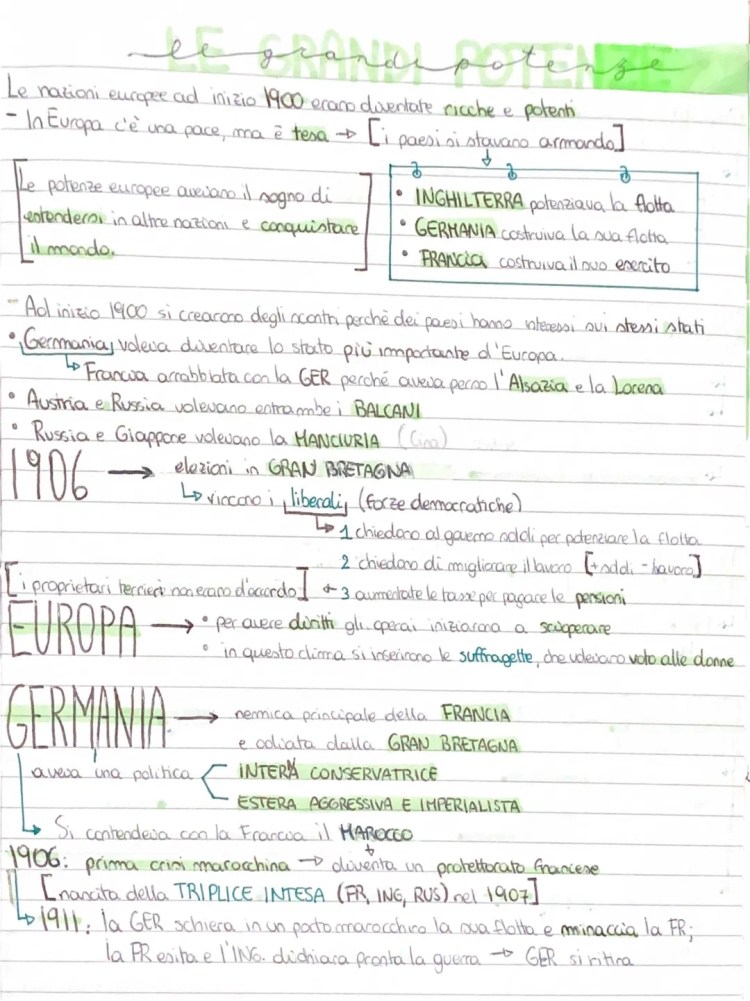 LE GRANDI POTENZE
le grandi potenze
Le nazioni europee ad inizio 1900 erano diventate ricche e potenti
- In Europa c'è una pace, ma è tesa → [i paesi si stavano armando]
[Le potenze europee avevano il sogno di
estendersi in altre nazioni e conquistare
il mondo.]
• INGHILTERRA potenziava la flotta
• GERMANIA costruiva la sua flotta
• FRANCIA costruiva il suo esercito
- Ad inizio 1900 si crearono degli scontri perchè dei paesi hanno interessi sui stessi stati
• Germania voleva diventare lo stato più importante d'Europa.
↳ Francia arrabbiata con la GER perché aveva perso l'Alsazia e la Lorena
• Austria e Russia volevano entrambe i BALCANI
• Russia e Giappone volevano la MANCIURIA (Cina)
1906 → elezioni in GRAN BRETAGNA
↳ vincono i liberali (forze democratiche)
↳ 1 chiedono al governo soldi per potenziare la flotta
2 chiedono di migliorare il lavoro [+ soldi - lavoro]
[i proprietari terrieri non erano d'accordo] ← 3 aumentate le tasse per pagare le pensioni
EUROPA → • per avere diritti gli operai iniziarono a scioperare
• in questo clima si inserirono le suffragette, che volevano voto alle donne
GERMANIA → nemica principale della FRANCIA
e odiata dalla GRAN BRETAGNA
aveva una politica < INTERNA CONSERVATRICE
ESTERA AGGRESSIVA E IMPERIALISTA
↳ Si contendeva con la Francia il MAROCCO
1906: prima crisi marocchina → diventa un protettorato francese
[nascita della TRIPLICE INTESA (FR, ING, RUS) nel 1907]
↳ 1911: la GER schiera in un porto marocchino la sua flotta e minaccia la FR;
la FR esita e l'ING. dichiara pronta la guerra → GER si ritira